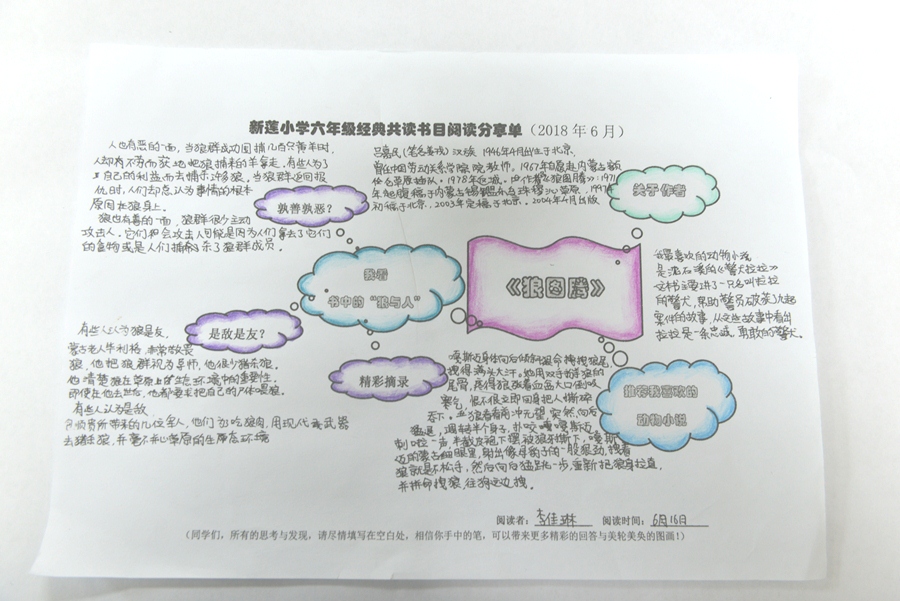 新莲小学六年级经典共读书目阅读分享单（2018年6月）
人也有恶的一面，当狼群成功围捕几百只黄羊时，
人却有不劳而获地把狼捕来的羊拿走，有些人为了
自己的利益而去捕杀许多狼。当狼群返回报
仇时，人们却总认为事情的根本
原因在狼身上。
狼也有善的一面，狼群很少主动
攻击人。它们和会攻击人可能是因为人们拿去了它们
的食物或是人们捕杀了狼群成员。
孰善孰恶？
吕嘉民（笔名姜戎）汉族 1946年4月出生于北京.
曾任中国劳动关系学院院教师。1967年自愿赴内蒙古额
仑仑草原插队。1978年返城。
初稿于北京. 2003年定稿于北京。2004年4月出版
关于作者
我看
书中的“狼与人”
《狼图腾》
我最喜欢的动物小说
是沈石溪的《警犬拉拉》
这本书主要讲了一只名叫拉拉
的警犬，帮助警员破获了九起
案件的故事，从这些故事中看出
拉拉是一条忠诚，勇敢的警犬。
是敌是友？
有些人认为狼是友。
蒙古老人毕利格，非常敬畏
狼，他把狼群视为导师，他很少猎杀狼。
他清楚狼在草原上的生态环境中的重要性。
即使在他去世后，他都要求把自己的尸体喂狼。
有些人认为是敌
包顺贵所带来的几位客人，他们为吃狼肉，用现代武器
去猎杀狼，并毫不关心草原的生态环境
精彩摘录
嘎斯迈身体向后倾斜狠命拽狼尾
拽得满头大汗。她用双手
尾骨，疼得狼张着血盆大口倒吸
寒气，恨不很立即回身把人撕碎
吞下。 狼看看前冲无望 突然向后
猛退，调转半个身子，扑咬嘎斯迈。
刺啦一声 半截皮袍下摆被狼牙撕下，嘎斯
迈的蒙古细眼里，射出像母豹子的一股狠劲，拽着
狼就是不松手，然后向后猛跳一步，重新把狼身拉直，
并拼命拽狼，往狗这边拽。
推荐我喜欢的
动物小说
阅读者：李佳琳 阅读时间：6月16日
（同学们，所有的思考与发现，请尽情填写在空白处，相信你手中的笔，可以带来更多精彩的回答与美轮美奂的图画！）